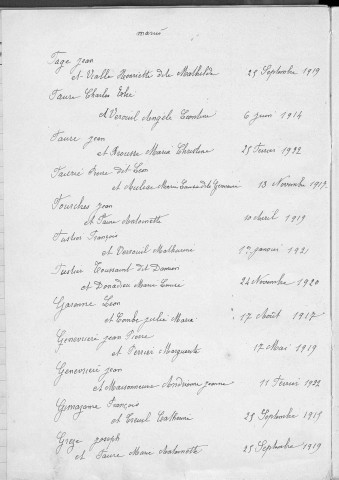 marié
Fage Jean
et Vialle Henriette dite Mathilde 25 Septembre 1919
Faure Charles
et Verneuil Angèle 6 juin 1914
Faure Jean
et Marie Christine 25 Février 1922
dit Léon
et Marie Louise dite Germaine 13 Novembre 1919
Fourches Jean
et Faure Antoinette 10 Avril 1919
François
et Verneuil Mathurine janvier 1921
Toussaint dit Damien
et Donadieu Marie Louise 24 Novembre 1920
Garoume Léon
et Combe Julie Marie 17 Août 1917
Genevrière Jean Pierre
et Perrier Marguerite 17 Mai 1919
Genevrière Jean
et Maisonneuve Andrienne Jeanne 11 Février 1922
Gimazane François
et Treuil Catherine 25 Septembre 1915
Grèze Joseph
et Faure Marie Antoinette 25 Septembre 1919